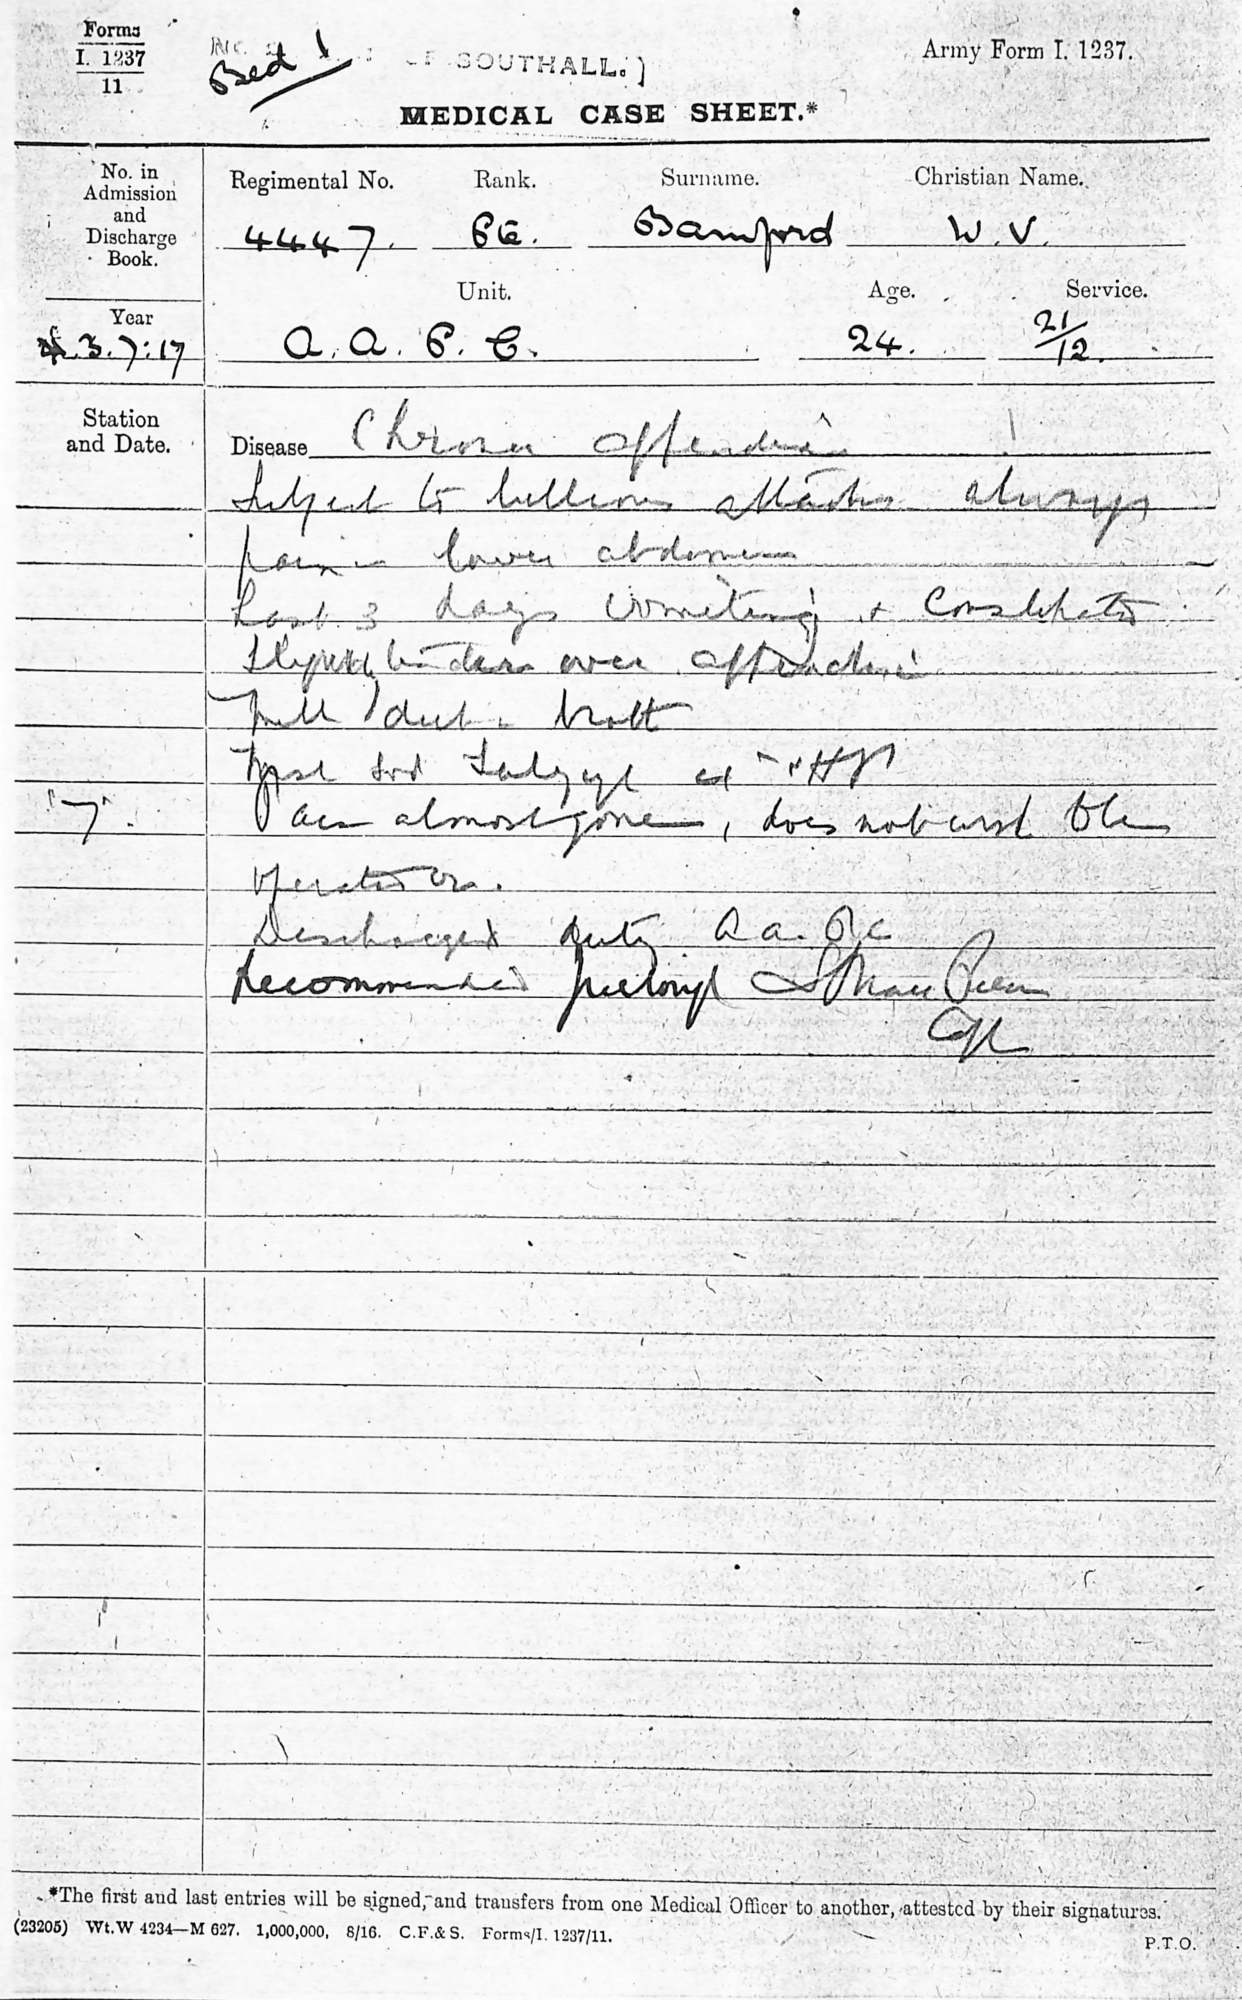 Forms
I. 1237
11
Bed 1
SOUTHALL.)
Army Form I. 1237.
MEDICAL CASE SHEET.*
No. in Admission and Discharge Book.
Regimental No. Rank. Surname. Christian Name.
4447. Pte. Bamford W. V.
Unit. Age. Service.
Year
3.7.17 A. A. P. C. 24. 21/12.
Station and Date.
Disease Chronic appendicitis
Subject to billious attacks always
pain in lower abdomen
Last 3 days vomiting & constipated
Slightly tender over appendix
Milk diet broth
7. Pain almost gone, does not wish to be
operated on.
Discharged duty A.A.P.C
Recommended
*The first and last entries will be signed, and transfers from one Medical Officer to another, attested by their signatures.
(23205) Wt.W 4234—M 627. 1,000,000, 8/16. C.F.& S. Forms/I. 1237/11.
P.T.O.